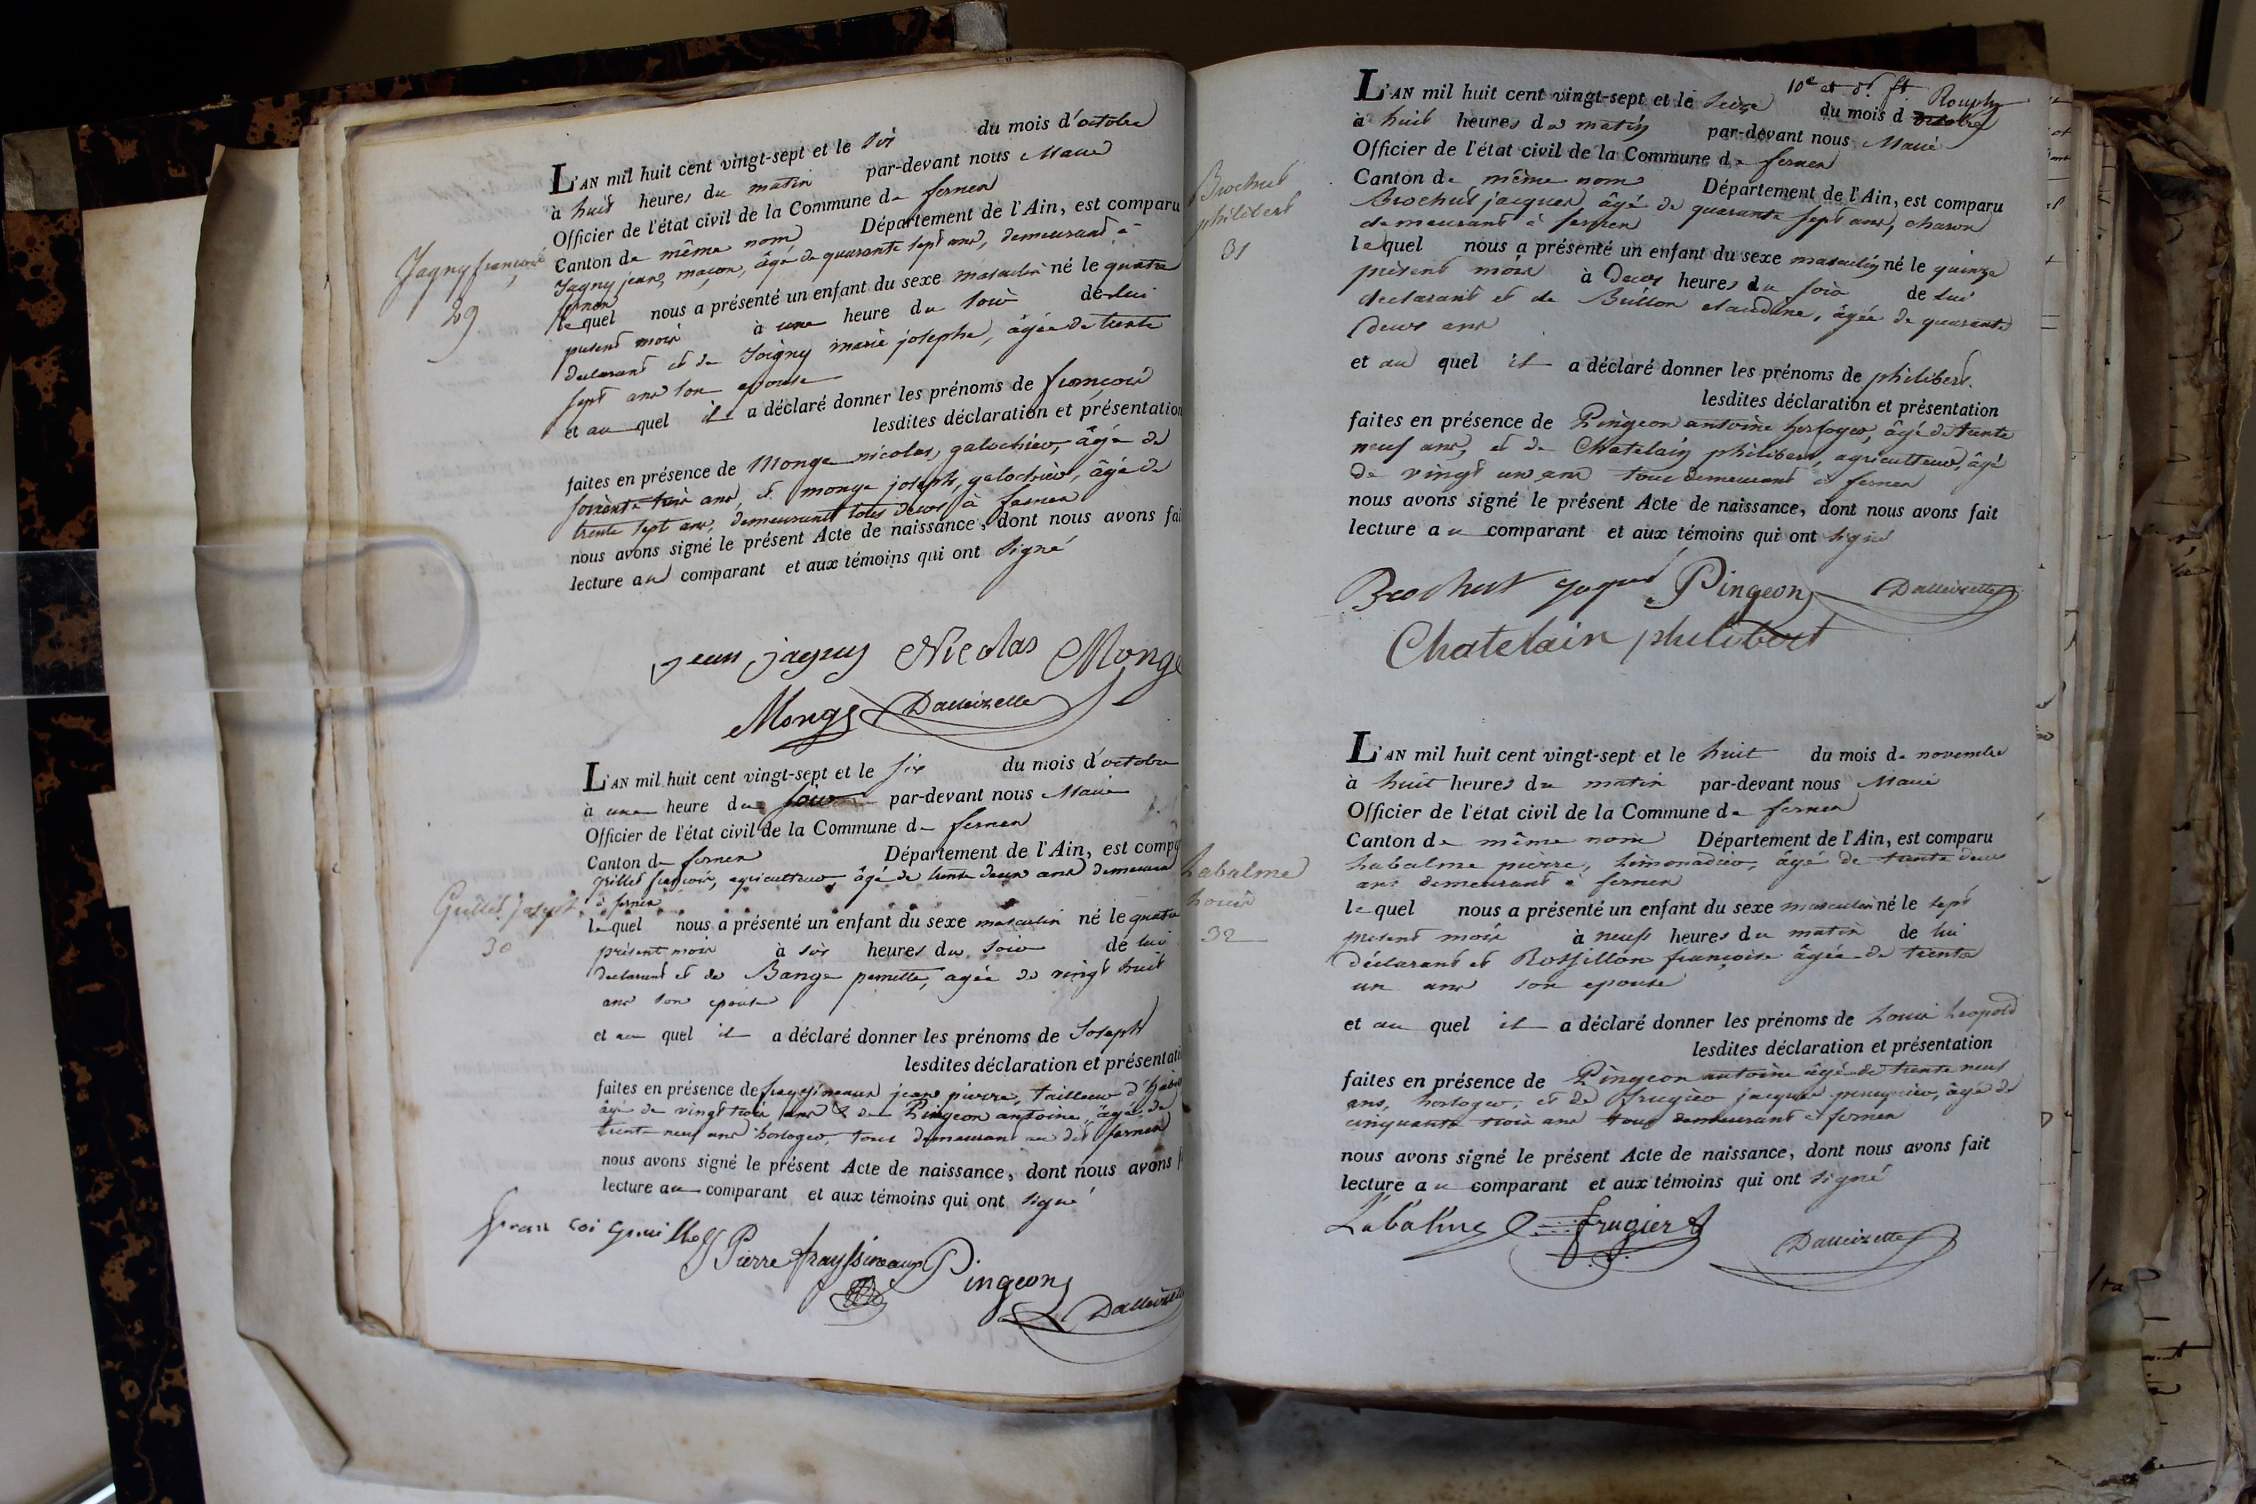 L'AN mil huit cent vingt-sept et le six du mois d'octobre
à huit heures du matin par-devant nous Maire
Officier de l'état civil de la Commune de fernex
Canton de même nom Département de l'Ain, est comparu
Jagny jean, maçon, âgé de quarante sept ans, demeurant à
fernex
lequel nous a présenté un enfant du sexe masculin né le quatre
présent mois à une heure du soir de lui
déclarant et de Joigny marie josephe, âgée de trente
sept ans son epouse
et au quel il a déclaré donner les prénoms de françois
lesdites déclaration et présentation
faites en présence de Monge nicolas, galochier, âgé de
soixante trois ans, et monge joseph, galochier, âgé de
trente sept ans, demeurant tous deux à fernex
nous avons signé le présent Acte de naissance, dont nous avons fai
lecture au comparant et aux témoins qui ont signé
Jagny françois
29
jean jagny Nicolas Monge
Monge Dalleizette
L'AN mil huit cent vingt-sept et le six du mois d'octobre
à une heure du soir par-devant nous Maire
Officier de l'état civil de la Commune de fernex
Canton de fernex Département de l'Ain, est comp
grillet françois, agriculteur âgé de trente deux ans demeurant
à fernex
lequel nous a présenté un enfant du sexe masculin né le quatre
présent mois à six heures du soir de lui
déclarant et de Bange pernette, agée de vingt huit
ans son epouse
et au quel il a déclaré donner les prénoms de Joseph
lesdites déclaration et présentati
faites en présence de frayssineaux jean pierre, tailleur d'habits
âgé de vingt trois ans & de Pingeon antoine, âgé de
trente neuf ans horloger, tous demeurant au dit fernex
nous avons signé le présent Acte de naissance, dont nous avons f
lecture au comparant et aux témoins qui ont signé
Grillet Joseph
30
fran coi Gruillet Pierre frayssineaux Pingeon
Dalleizette
10e et dr ft
L'AN mil huit cent vingt-sept et le seize du mois d octobre
à huit heures du matin par-devant nous Maire
Officier de l'état civil de la Commune de fernex
Canton de même nom Département de l'Ain, est comparu
Brochut jacques, âgé de quarante sept ans, charon
demeurant à fernex
lequel nous a présenté un enfant du sexe masculin né le quinze
présent mois à Deux heures du soir de lui
declarant et de Buisson claudine, âgée de quarante
deux ans
et au quel il a déclaré donner les prénoms de philibert.
lesdites déclaration et présentation
faites en présence de Pingeon antoine horloger, âgé de trente
neuf ans, et de Chatelain philibert, agriculteur, âgé
de vingt un ans tous demeurant à fernex
nous avons signé le présent Acte de naissance, dont nous avons fait
lecture au comparant et aux témoins qui ont signé
Brochut
philibert
31
Brochut Pingeon Dalleizette
Chatelain philibert
L'AN mil huit cent vingt-sept et le huit du mois de novembre
à huit heures du matin par-devant nous Maire
Officier de l'état civil de la Commune de fernex
Canton de même nom Département de l'Ain, est comparu
Labalme pierre, limonadier, âgé de trente deux
ans demeurant à fernex
lequel nous a présenté un enfant du sexe masculin né le sept
présent mois à neuf heures du matin de lui
déclarant et Rossillon françoise âgée de trente
un ans son epouse
et au quel il a déclaré donner les prénoms de Louis Leopold
lesdites déclaration et présentation
faites en présence de Pingeon antoine âgé de trente neuf
ans, horloger, et de frugier jacques perruquier, âgé de
cinquante trois ans tous demeurant à fernex
nous avons signé le présent Acte de naissance, dont nous avons fait
lecture au comparant et aux témoins qui ont signé
Labalme
Louis
32
Labalme frugier
Dalleizette